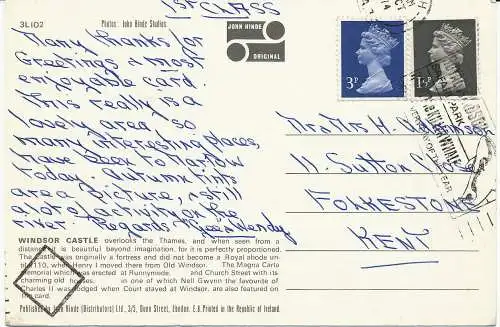 3LI02
Photos: John Hinde Studios
1st CLASS
JOHN HINDE
ORIGINAL
Many thanks for
Greetings & most
enjoyable card.
This really is a
lovely area so
many interesting places,
have been to Marlow
today. Autumn tints
are a picture, & still
a lot of activity on the
river. Regards
3P
1½P
Mr & Mrs H.
11. Sutton Close
FOLKESTONE
KENT
WINDSOR CASTLE overlooks the Thames, and when seen from a
distance it is beautiful beyond imagination, for it is proportioned. The
The castle was originally a fortress and did not become a Royal abode un-
1110, when Henry I moved there from Old Windsor. The Magna Carta
Memorial which was erected at Runnymede, and Church Street with its
charming old houses, in one of which Nell Gwynn the favourite of
Charles II was lodged when Court stayed at Windsor, are also featured on
this card.
Published by John Hinde (Distributors) Ltd., 3/5, Dunn Street, London. E.8. Printed in the Republic of Ireland.